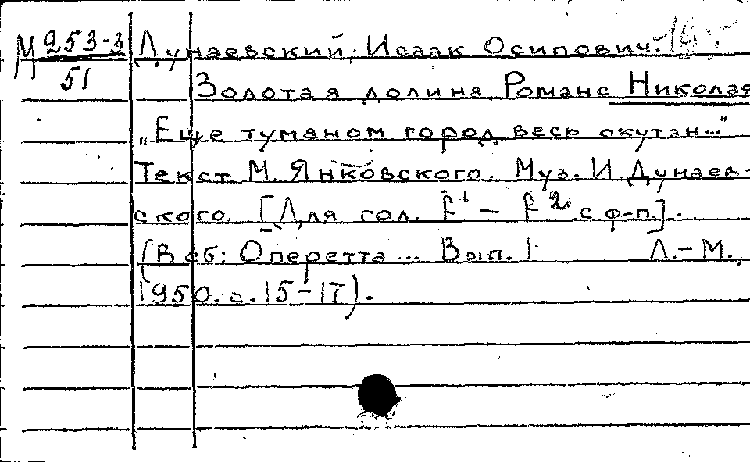 М 253-3 Дунаевский, Исаак Осипович.
51
Золотая долина. Романс Николая
„Еще туманом город весь окутан..."
Текст М. Янковского. Муз. И Дунаев-
ского. [Для гол. с ф-п.].
(В сб: Оперетта... Вып. 1 Л.-М.,
1950. с. 15-17).